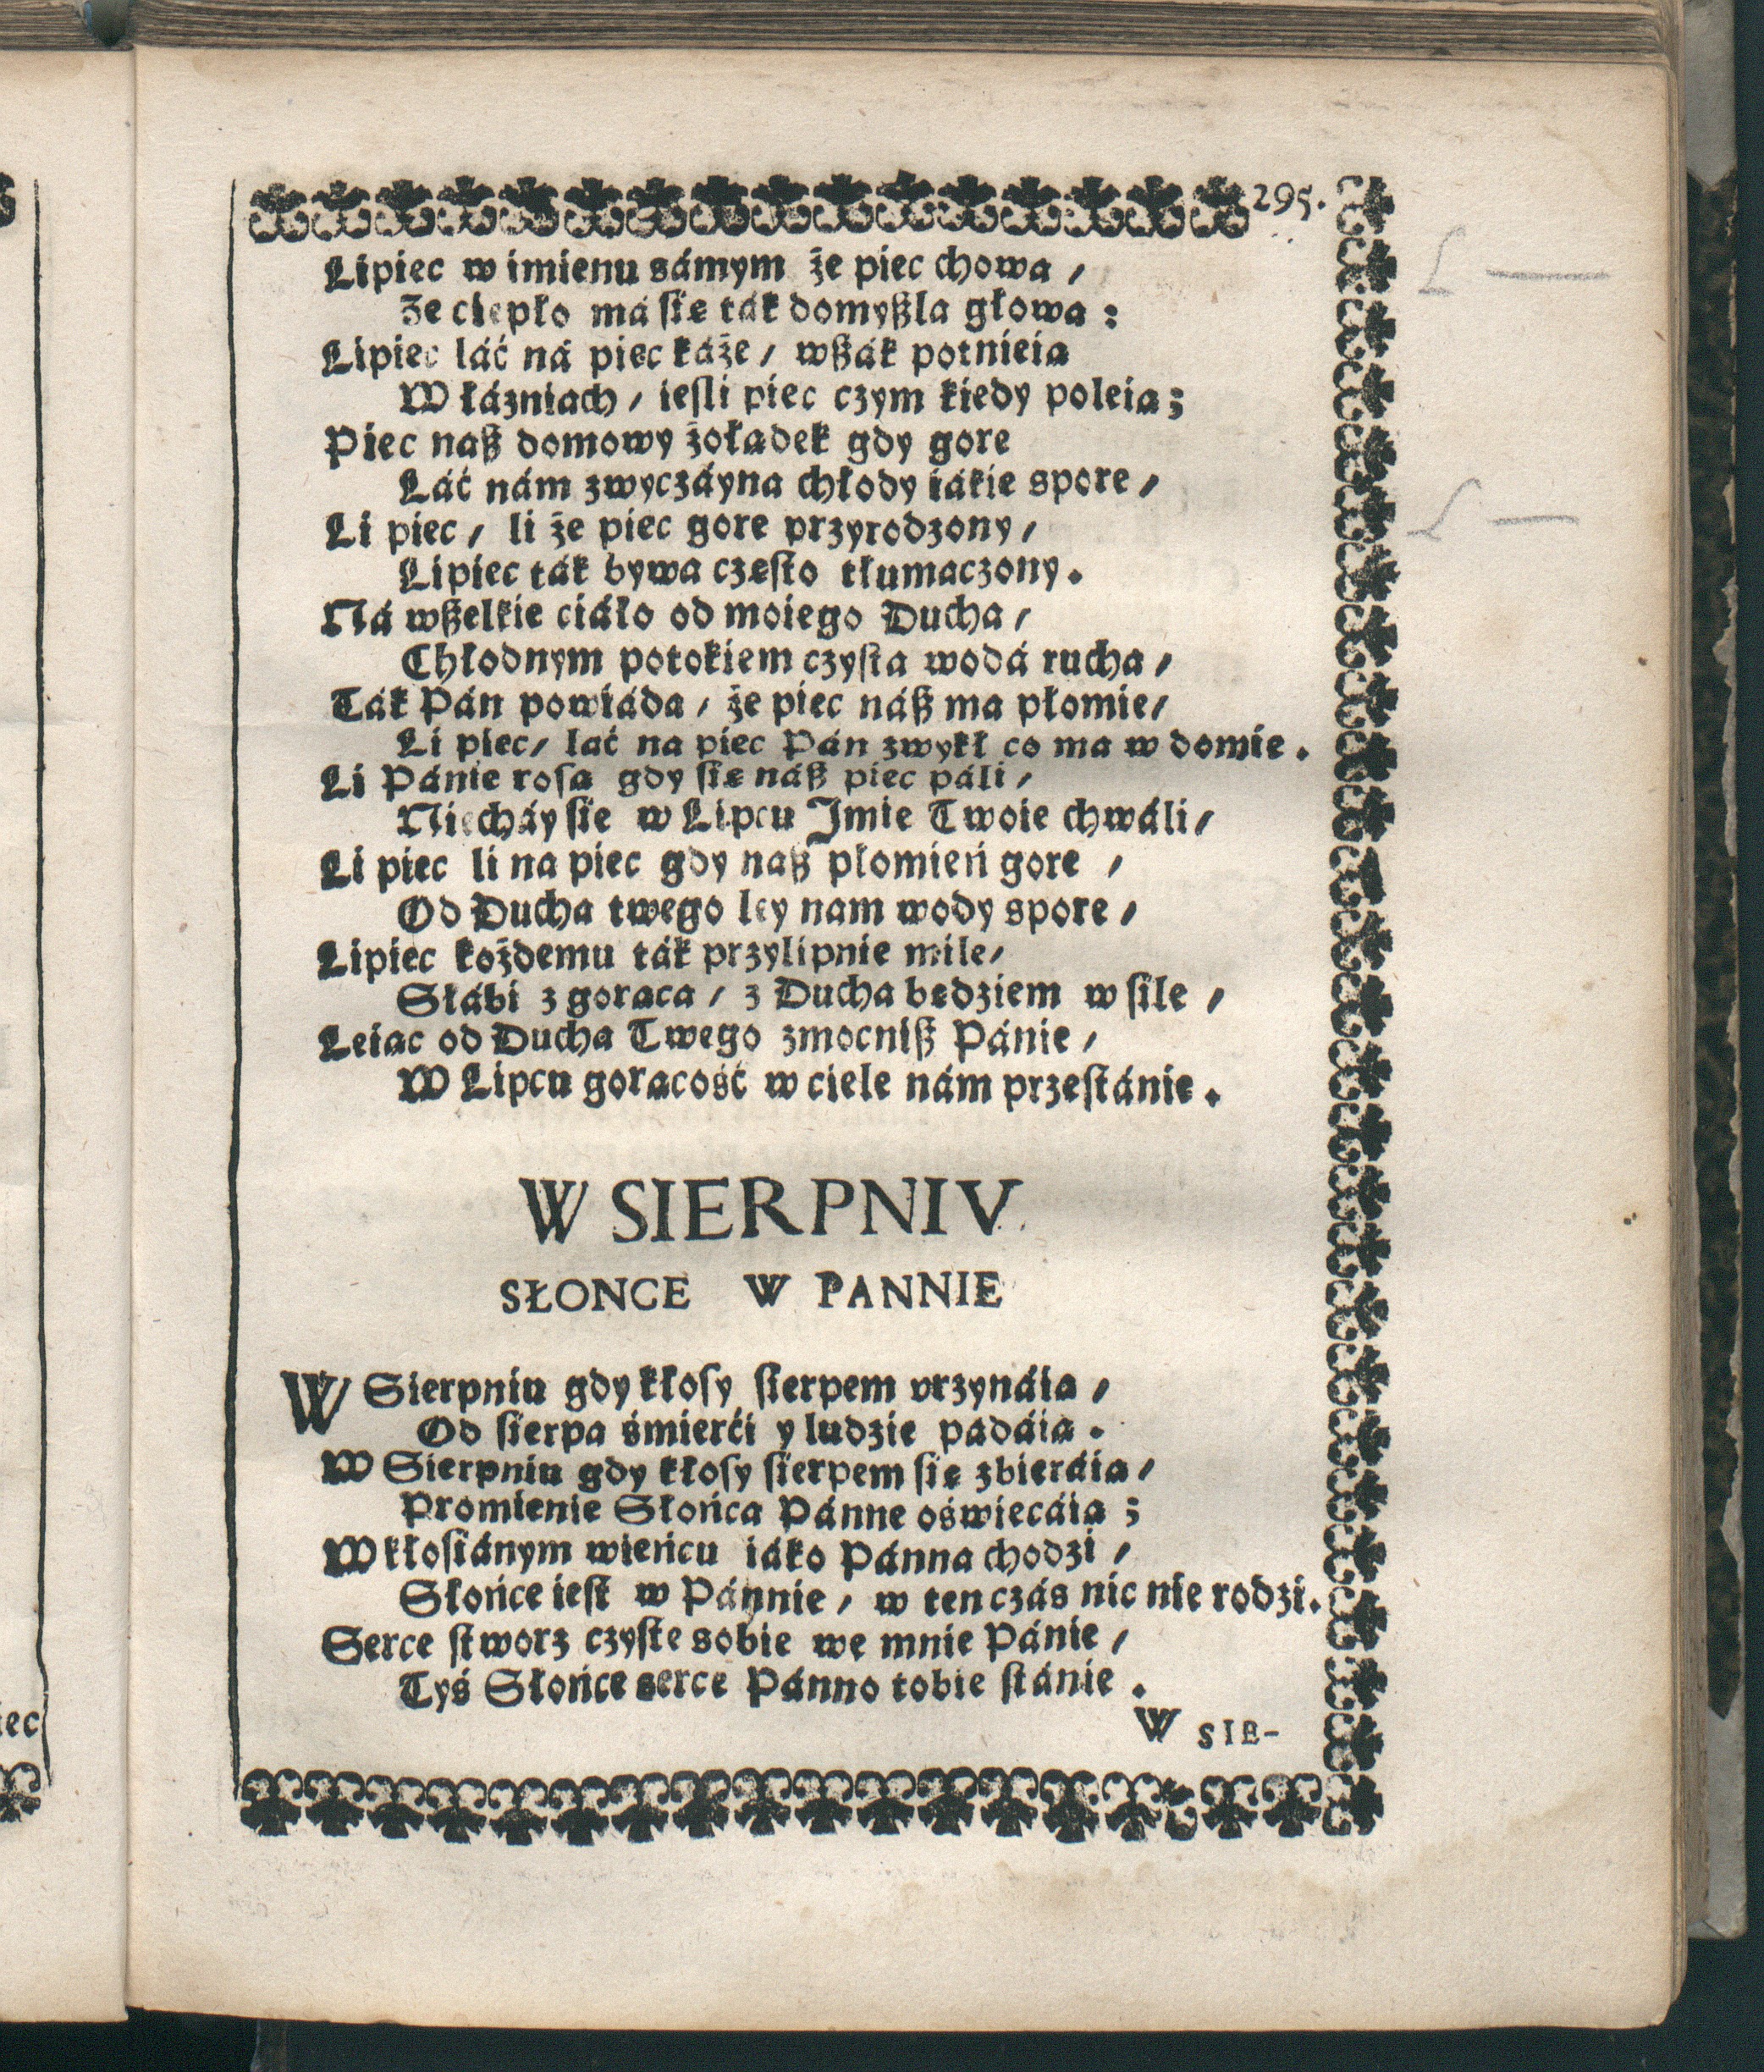 295.
Lipiec w imienu sámym że piec chowa /
Że ciepło má się ták domyßla głowa :
Lipiec láć ná piec káże / wßák potnieią
W łázniach / ieſli piec czym kiedy poleią ;
Piec naß domowy żołądek gdy gore
Láć nám zwyczáyna chłody iákie spore /
Li piec / li że piec gore przyrodzony /
Lipiec ták bywa częſto tłumaczony .
Ná wßelkie ciáło od moiego Ducha /
Chłodnym potokiem czyſta wodá rucha /
Ták Pán powiáda / że piec náß ma płomie /
Li piec / lać na piec Pán zwykł co ma w domie .
Li Pánie rosą gdy ſię náß piec páli /
Niecháy ſię w Lipcu Jmie Twoie chwáli /
Li piec li na piec gdy naß płomień gore /
Od Ducha twego ley nam wody spore /
Lipiec kożdemu ták przylipnie mile /
Słábi z gorąca / z Ducha będziem w ſile /
Leiąc od Ducha Twego zmocniß Pánie /
W Lipcu gorącość w ciele nám przeſtánie .
W SIERPNIV
SŁONCE W PANNIE
W Sierpniu gdy kłoſy ſierpem vrzynáią /
Od ſierpa śmierći y ludzie padáią .
W Sierpniu gdy kłoſy ſierpem ſię zbieráią /
Promienie Słońca Pánnę oświecáią ;
W kłoſiánym wieńcu iáko Pánna chodzi /
Słońce ieſt w Pánnie / w ten czás nic nie rodzi .
Serce ſtworz czyſte sobie we mnie Pánie /
Tyś Słońce serce Pánno tobie ſtánie .
W SIE-
iec